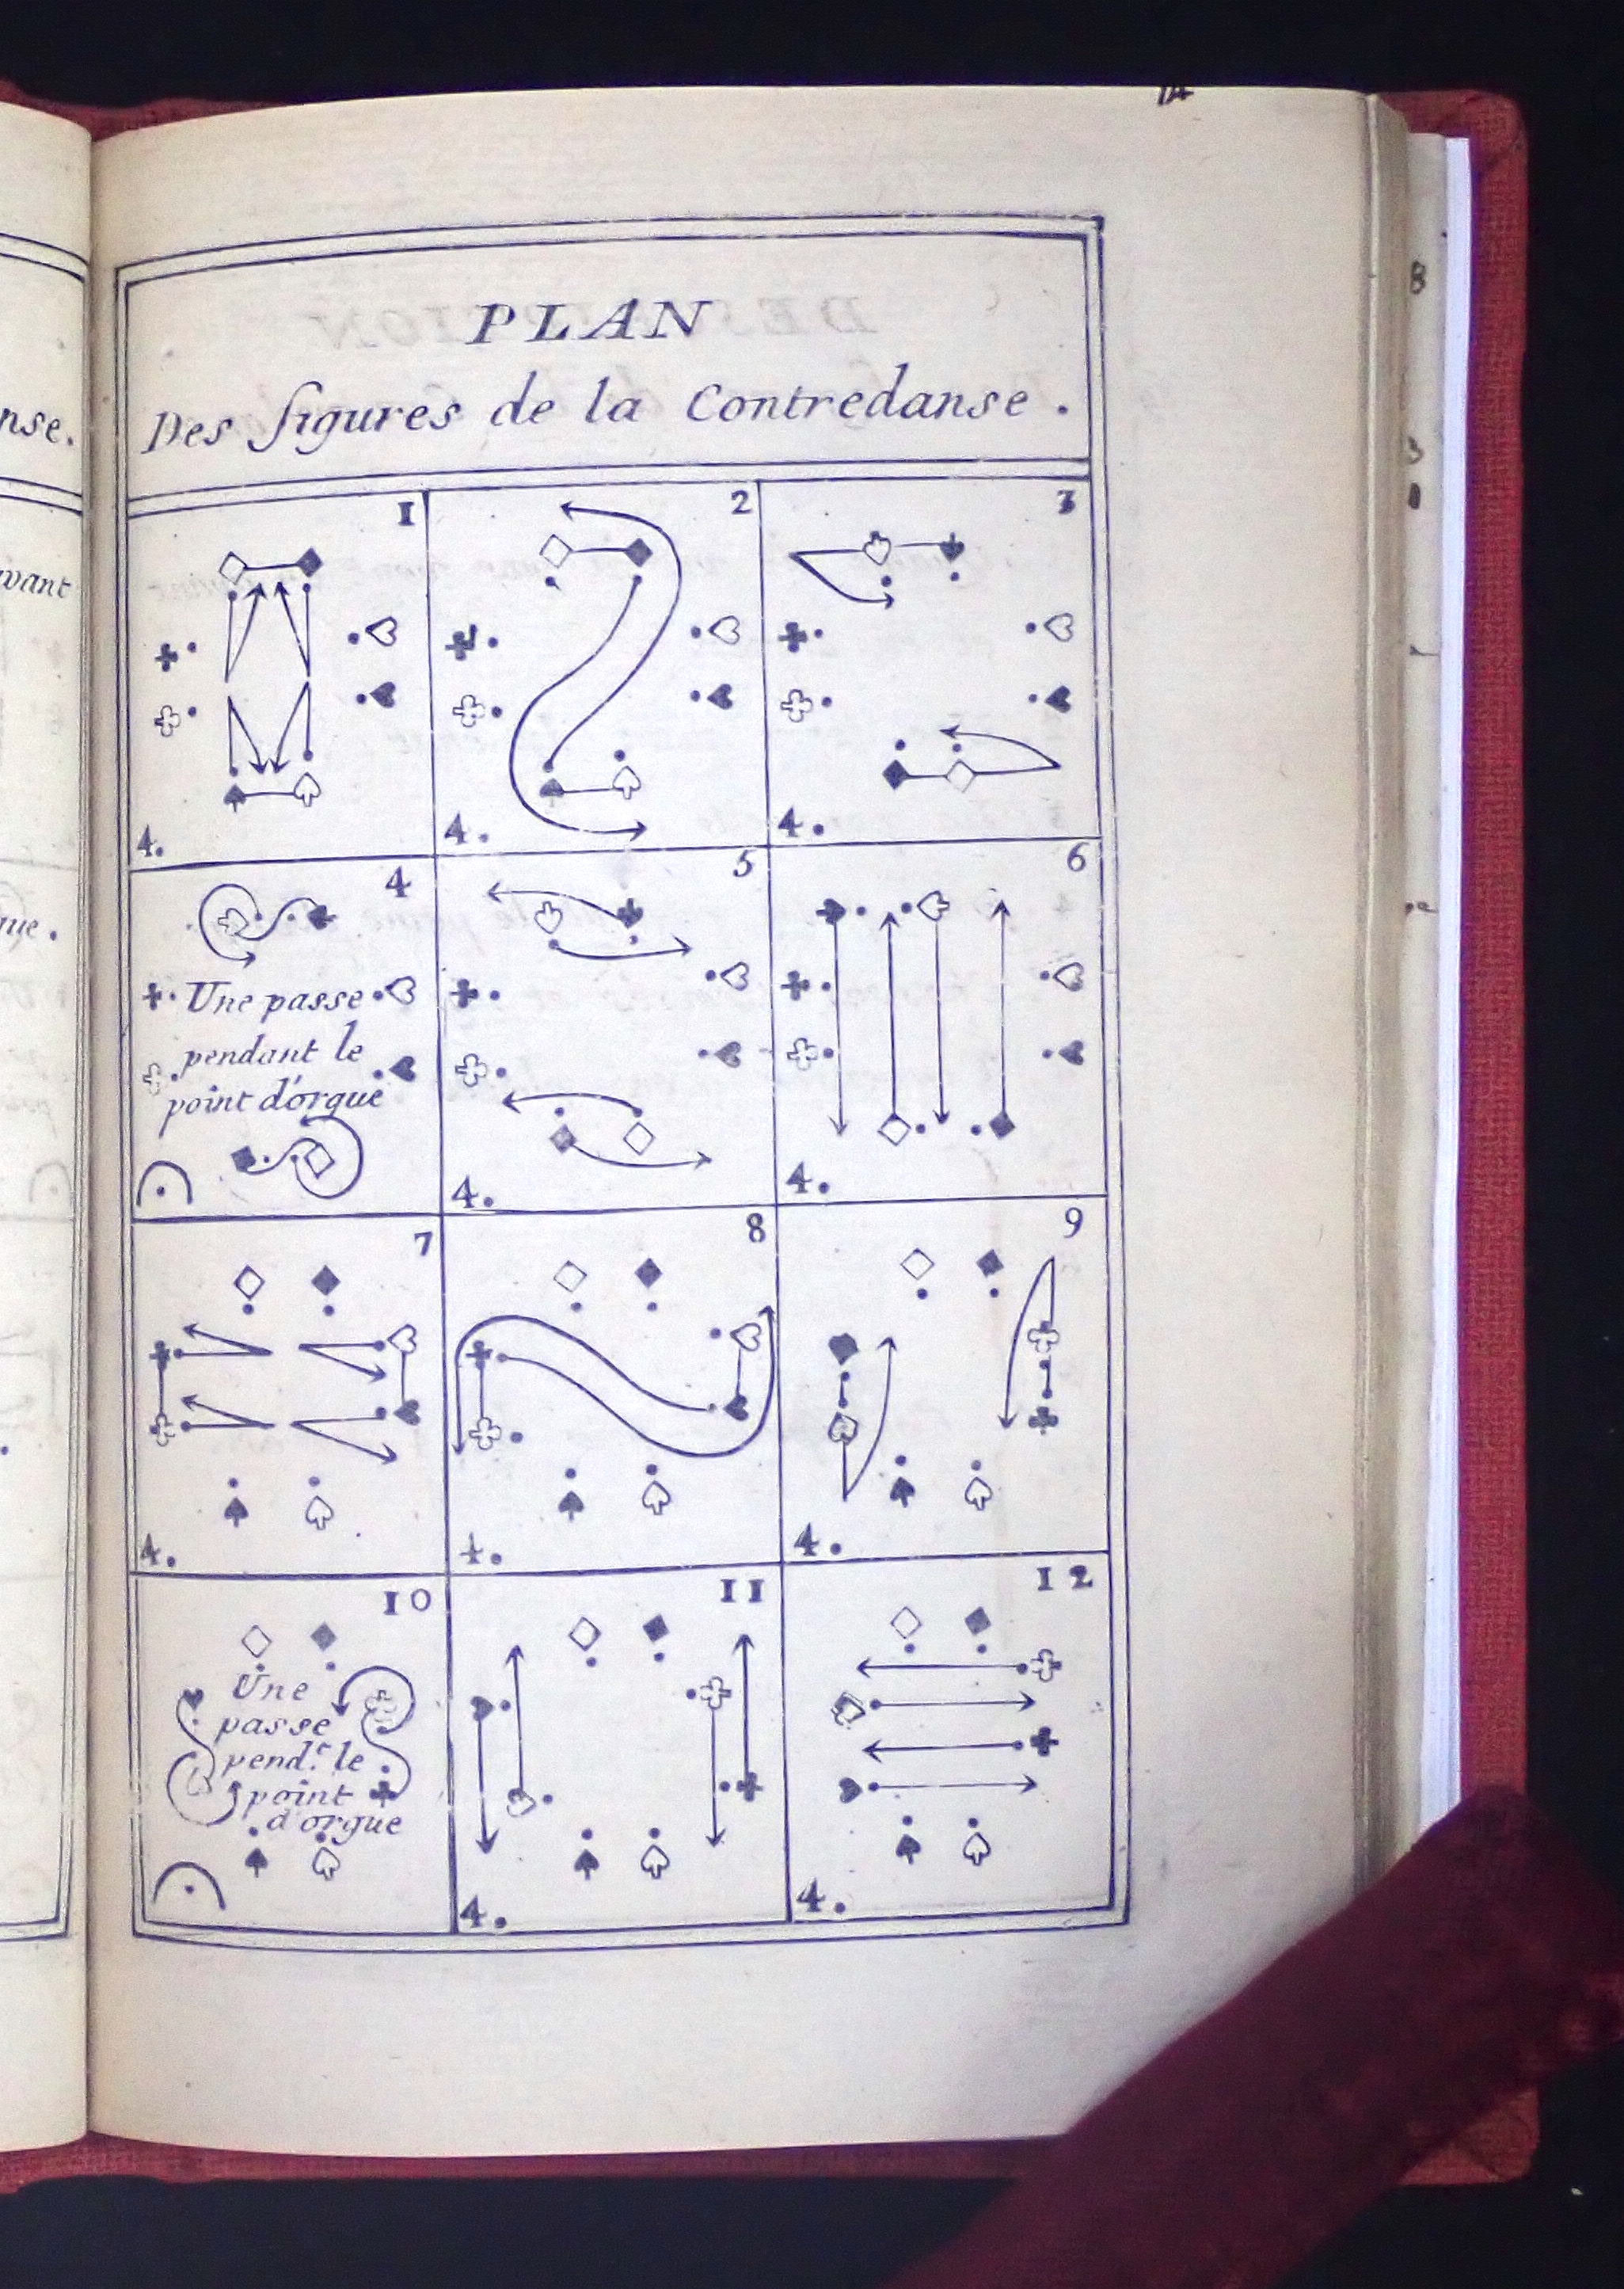 PLAN
Des figures de la Contredanse.
1
4.
2
4.
3
4.
4
Une passe
pendant le
point d'orgue
5
4.
6
4.
7
4.
8
4.
9
4.
10
Une
passe
pend.t le
point
d'orgue
11
4.
12
4.
nse.
vant
que.
8